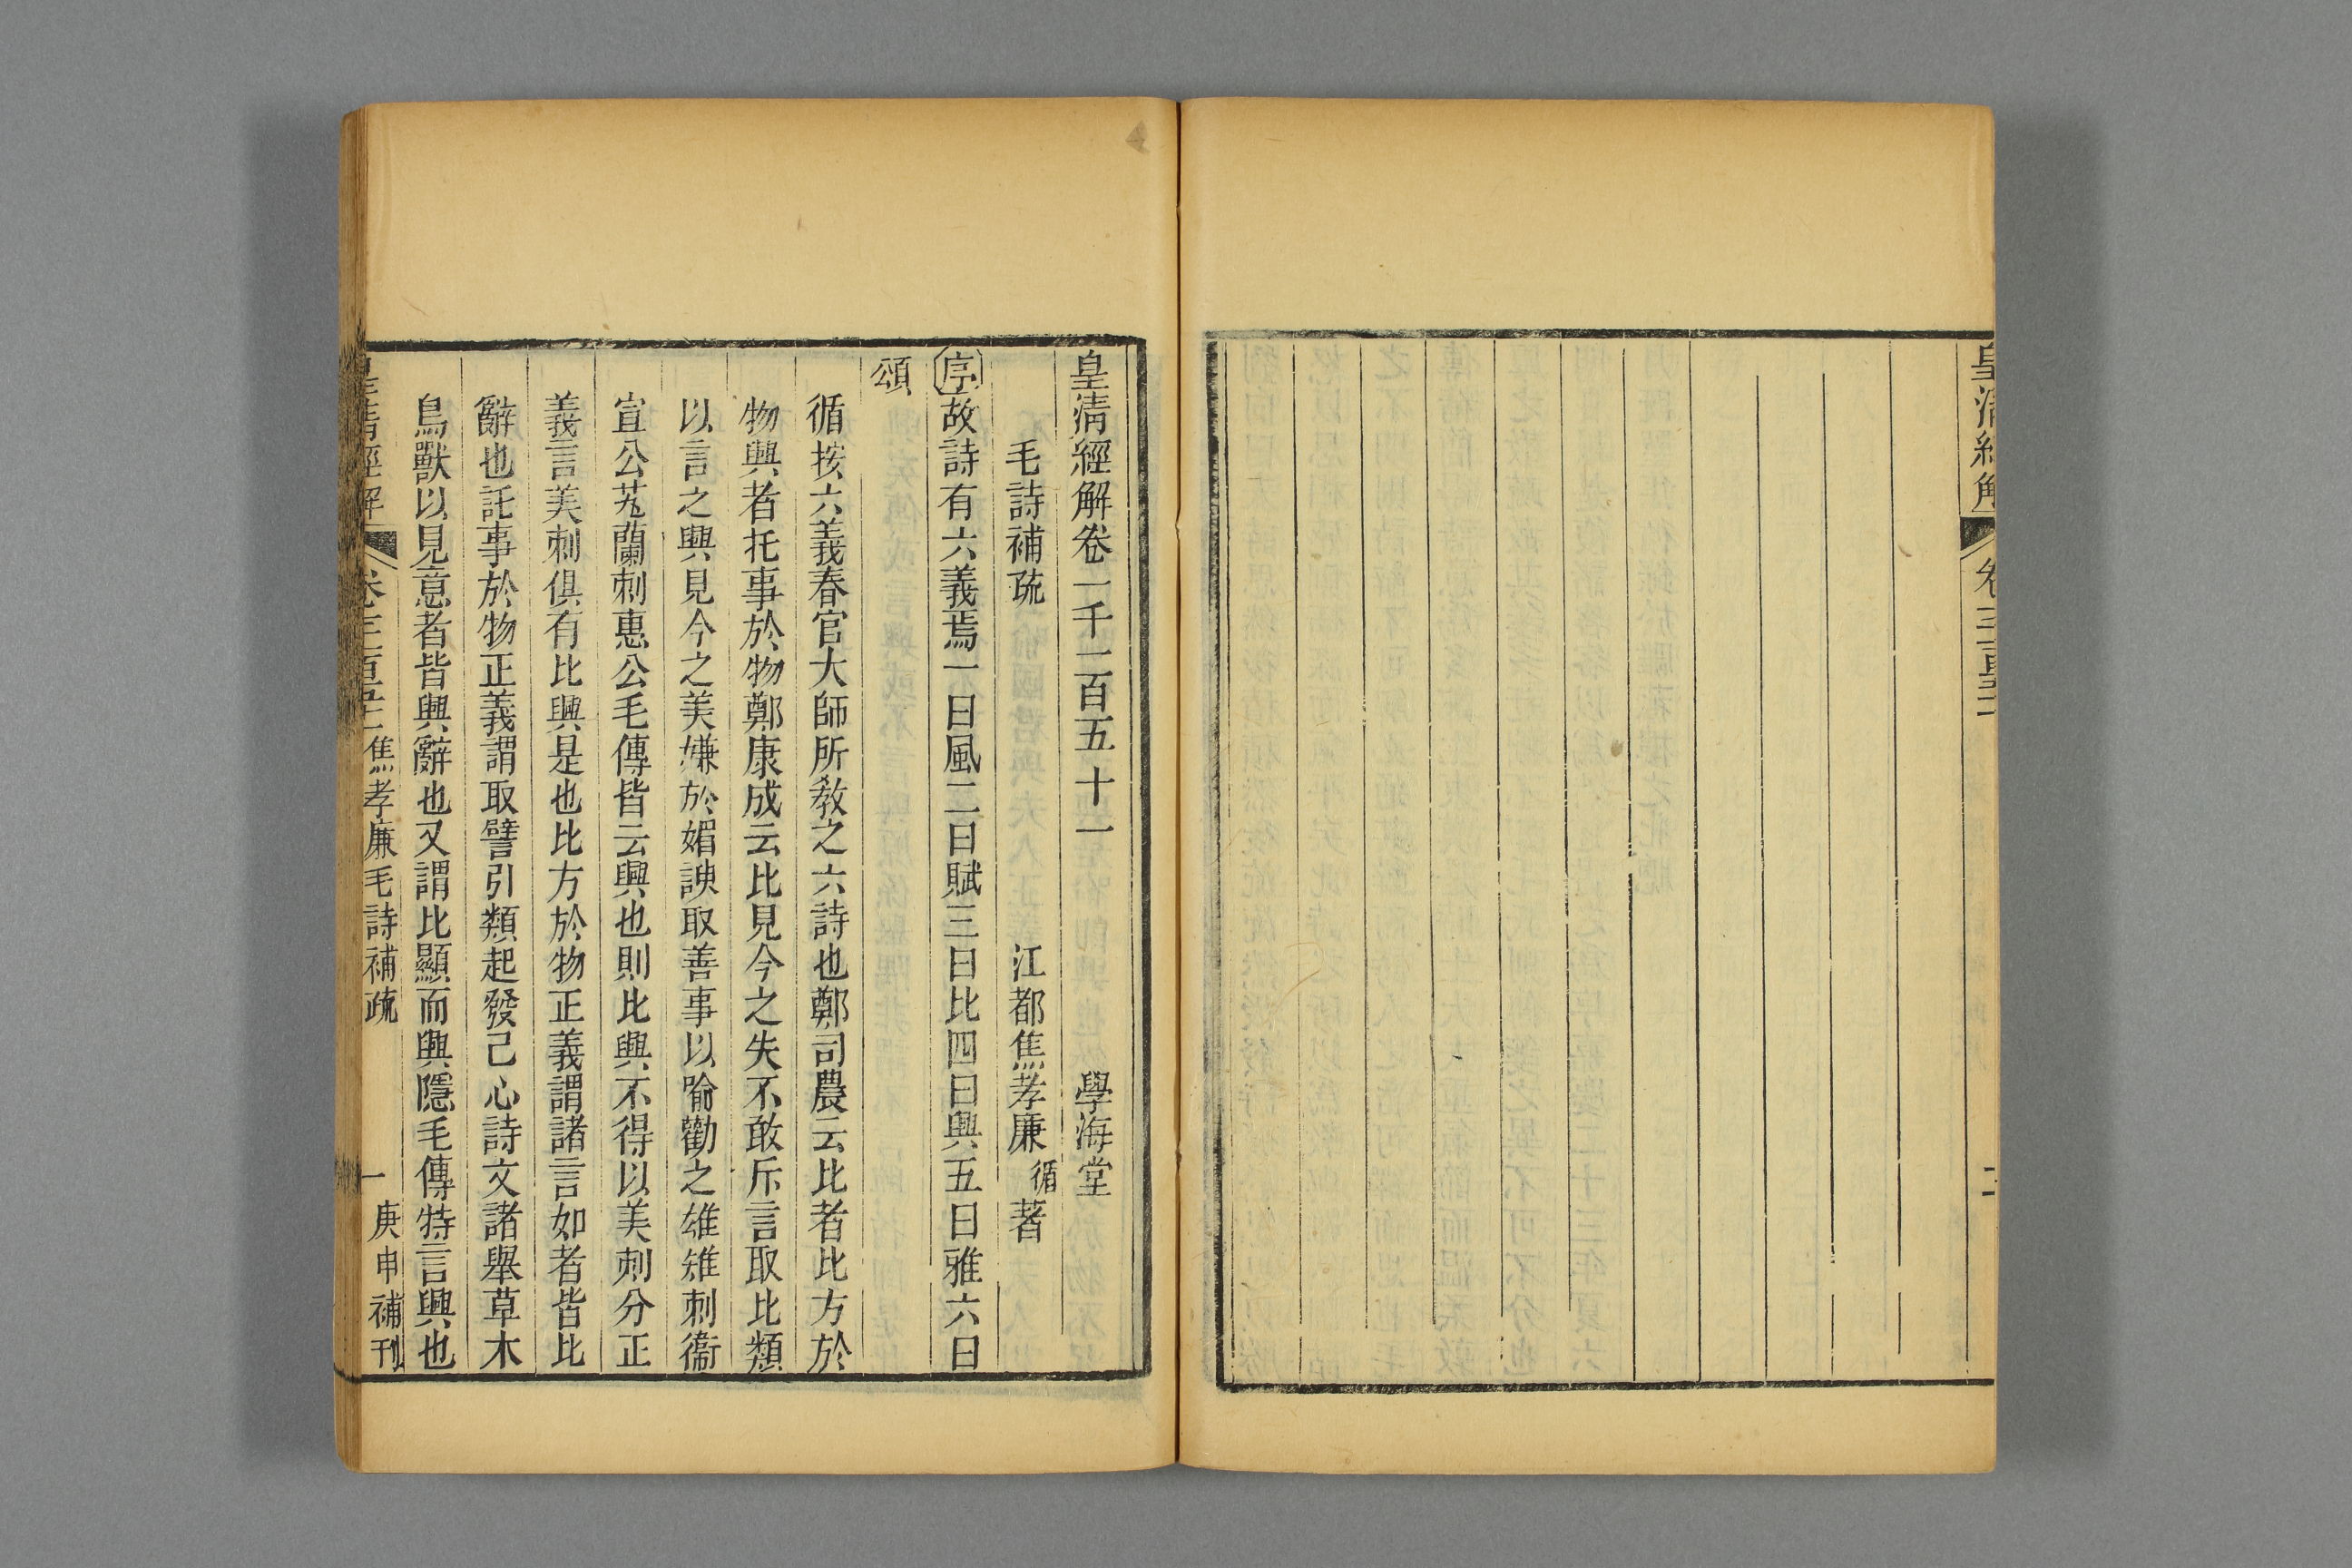 皇清經解
皇清經解卷一千一百五十一 學海堂
毛詩補疏 江都焦孝廉循著
序故詩有六義焉一曰風二曰賦三曰比四曰興五曰雅六曰
頌
循按六義春官大師所敎之六詩也鄭司農云比者比方於
物興者托事於物鄭康成云比見今之失不敢斥言取比類
以言之興見今之美嫌於媚諛取善事以喻勸之雄雉刺衞
宣公芄蘭刺惠公毛傳皆云興也則比興不得以美刺分正
義言美刺俱有比興是也比方於物正義謂諸言如者皆比
辭也託事於物正義謂取譬引類起發己心詩文諸舉草木
鳥獸以見意者皆興辭也又謂比顯而興隱毛傳特言興也
皇清經解 焦孝廉毛詩補疏 一 庚申補刊